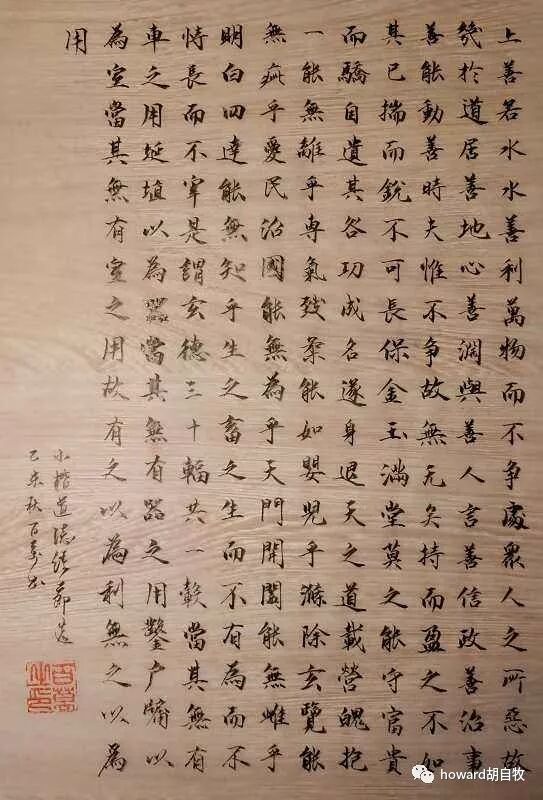 上善若水水善利萬物而不争處眾人之所惡故
幾於道居善地心善淵與善人言善信政善治事
善能動善時夫惟不争故無尤矣持而盈之不如
其已揣而銳不可長保金玉滿堂莫之能守富貴
而驕自遺其咎功成名遂身退天之道載營魄抱
一能無離乎専氣致柔能如嬰兒乎滌除玄覽能
無疵乎愛民治國能無為乎天門開闔能無雌乎
明白四達能無知乎生之畜之生而不有為而不
恃長而不宰是謂玄德三十輻共一轂當其無有
車之用埏埴以為器當其無有器之用鑿户牖以
為室當其無有室之用故有之以為利無之以為
用
小楷道德經節选
乙未秋百
howard胡自牧